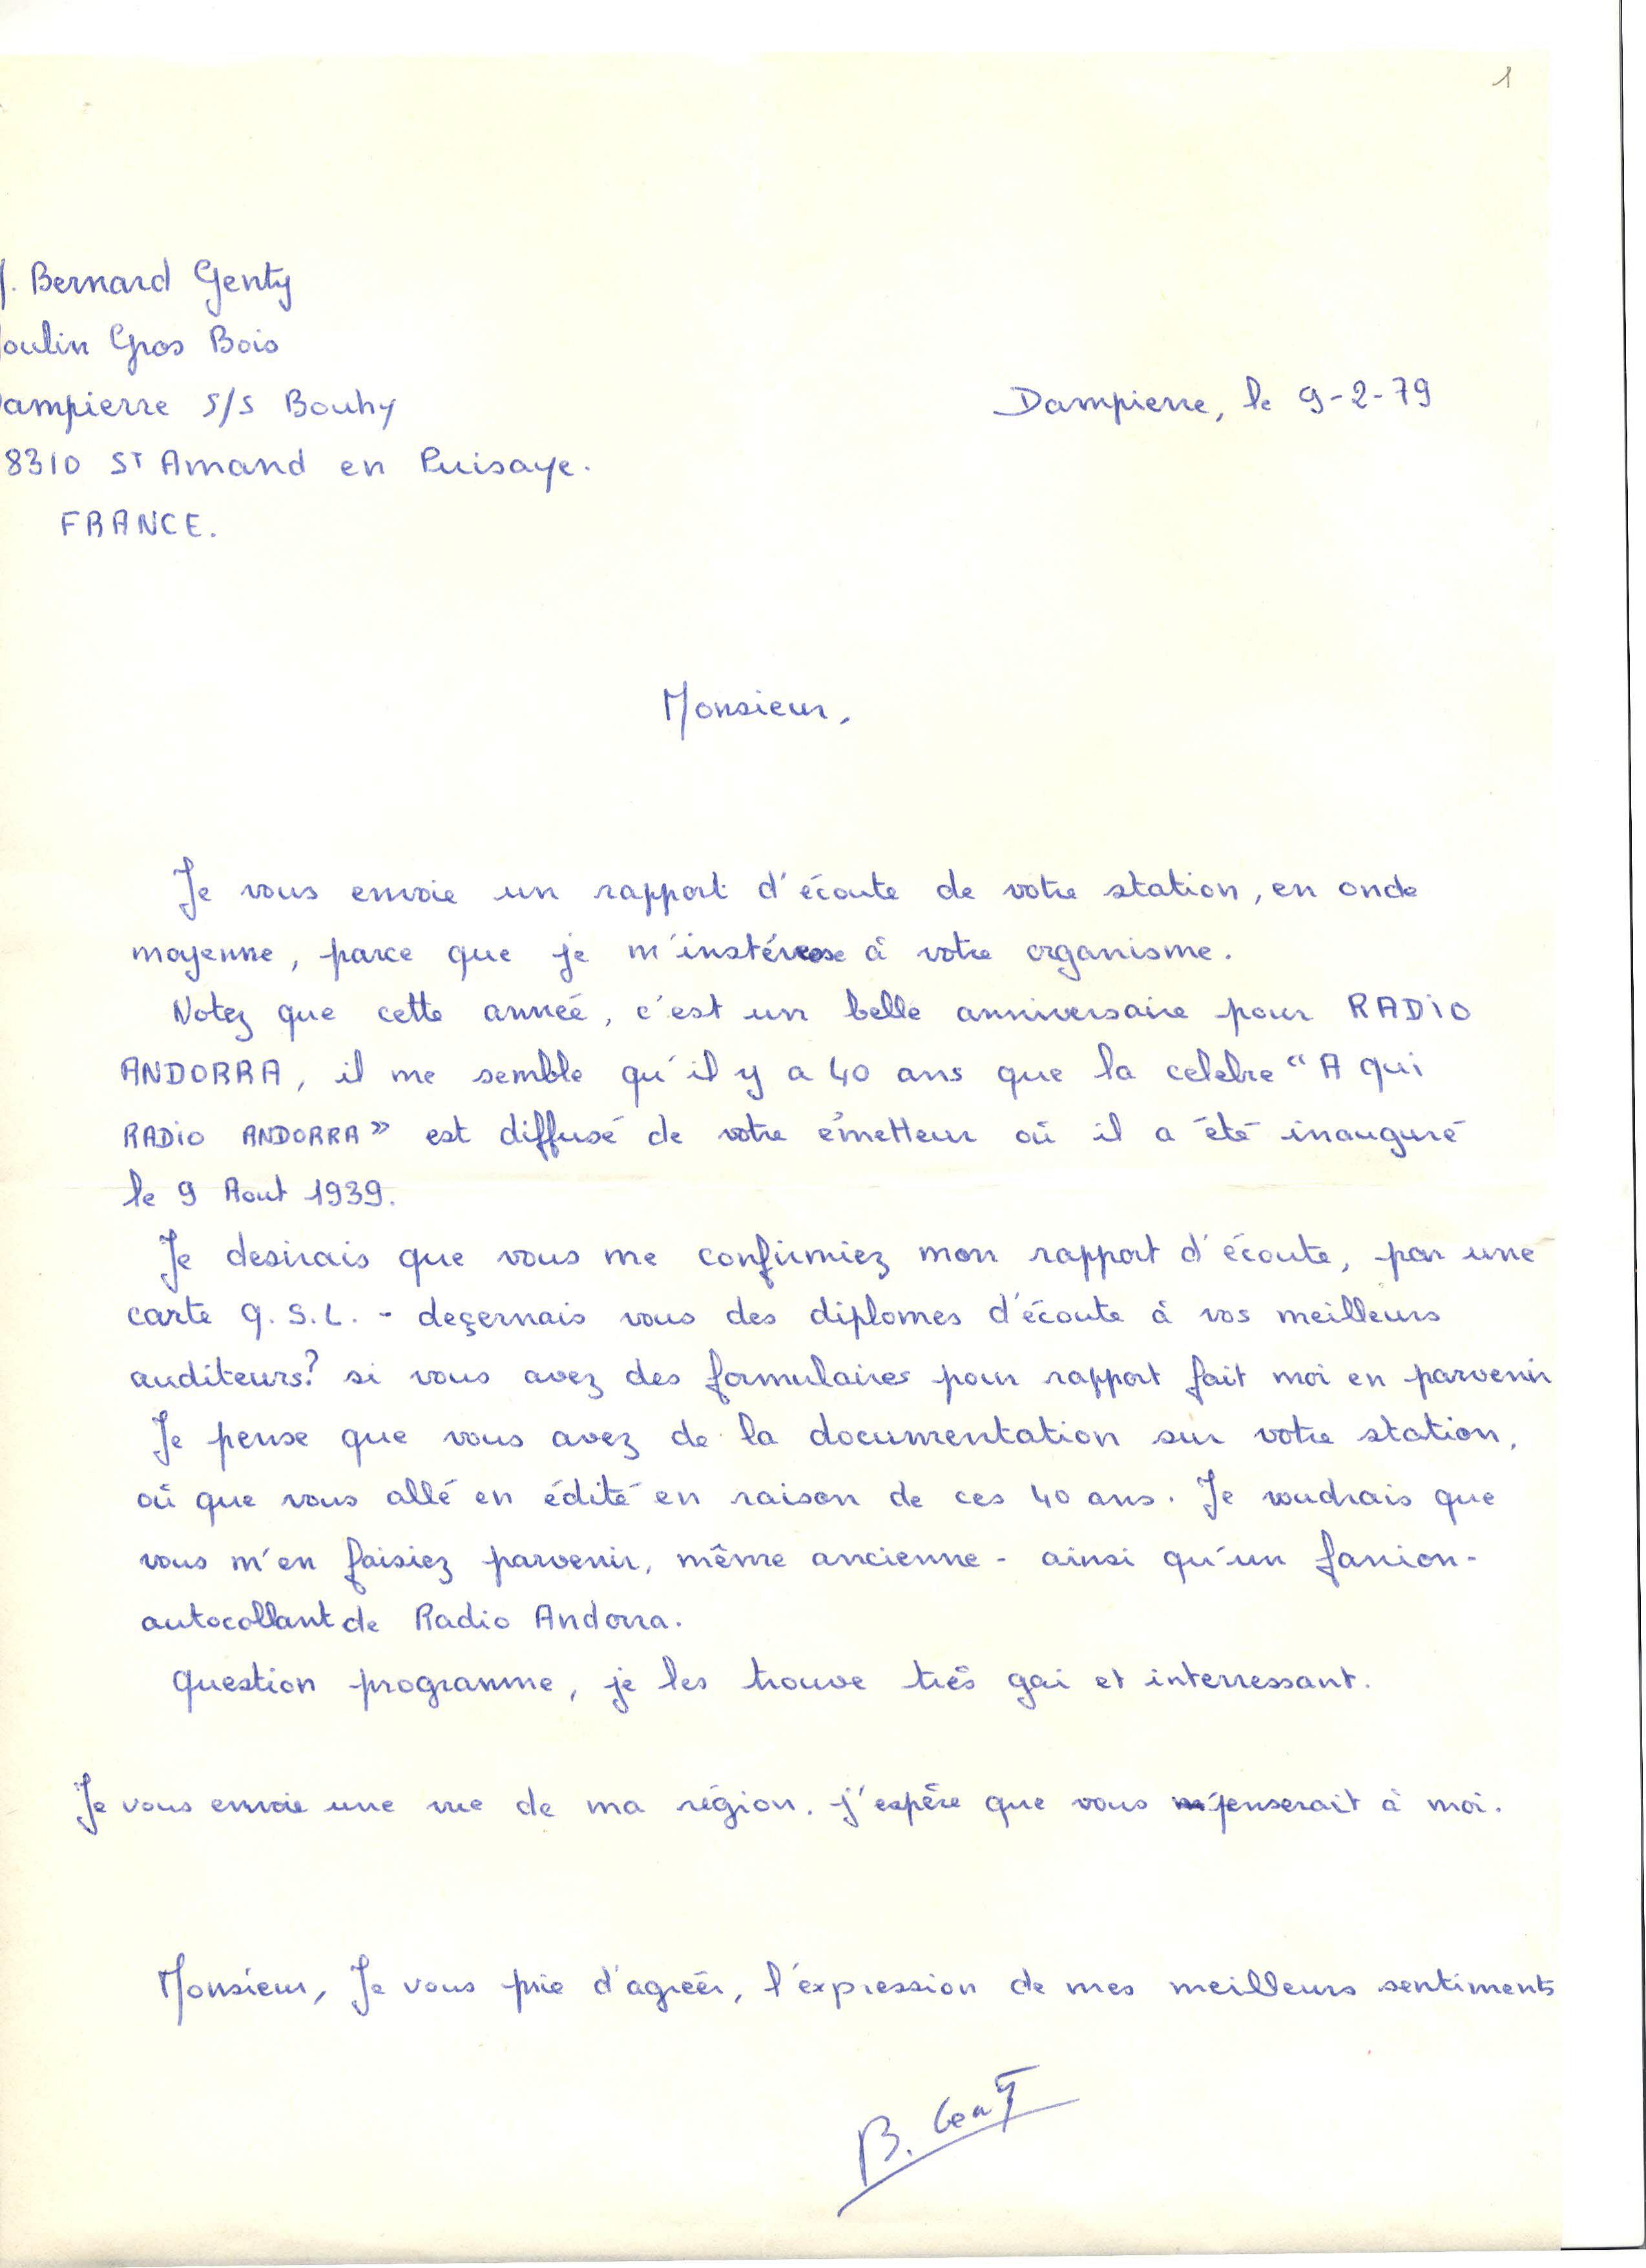 1
. Bernard Genty
oulin Gros Bois
ampierre S/S Bouhy
8310 ST Amand en Puisaye.
FRANCE.
Dampierre, le 9-2-79
Monsieur,
Je vous envoie un rapport d'écoute de votre station, en onde
moyenne, parce que je m'instéresse à votre organisme.
Notez que cette année, c'est un belle anniversaire pour RADIO
ANDORRA, il me semble qu'il y a 40 ans que la celebre "A qui
RADIO ANDORRA" est diffusé de votre émetteur où il a été inauguré
le 9 Aout 1939.
Je desirais que vous me confirmiez mon rapport d'écoute, par une
carte Q.S.L. - deçernais vous des diplomes d'écoute à vos meilleurs
auditeurs? si vous avez des formulaires pour rapport fait moi en parvenir
Je pense que vous avez de la documentation sur votre station,
où que vous allé en édité en raison de ces 40 ans. Je voudrais que
vous m'en faisiez parvenir, même ancienne - ainsi qu'un fanion-
autocollant de Radio Andorra.
Question programme, je les trouve très gai et interressant.
Je vous envoie une vue de ma région. j'espère que vous penserait à moi.
Monsieur, Je vous prie d'agréér, l'expression de mes meilleurs sentiments
B. Genty